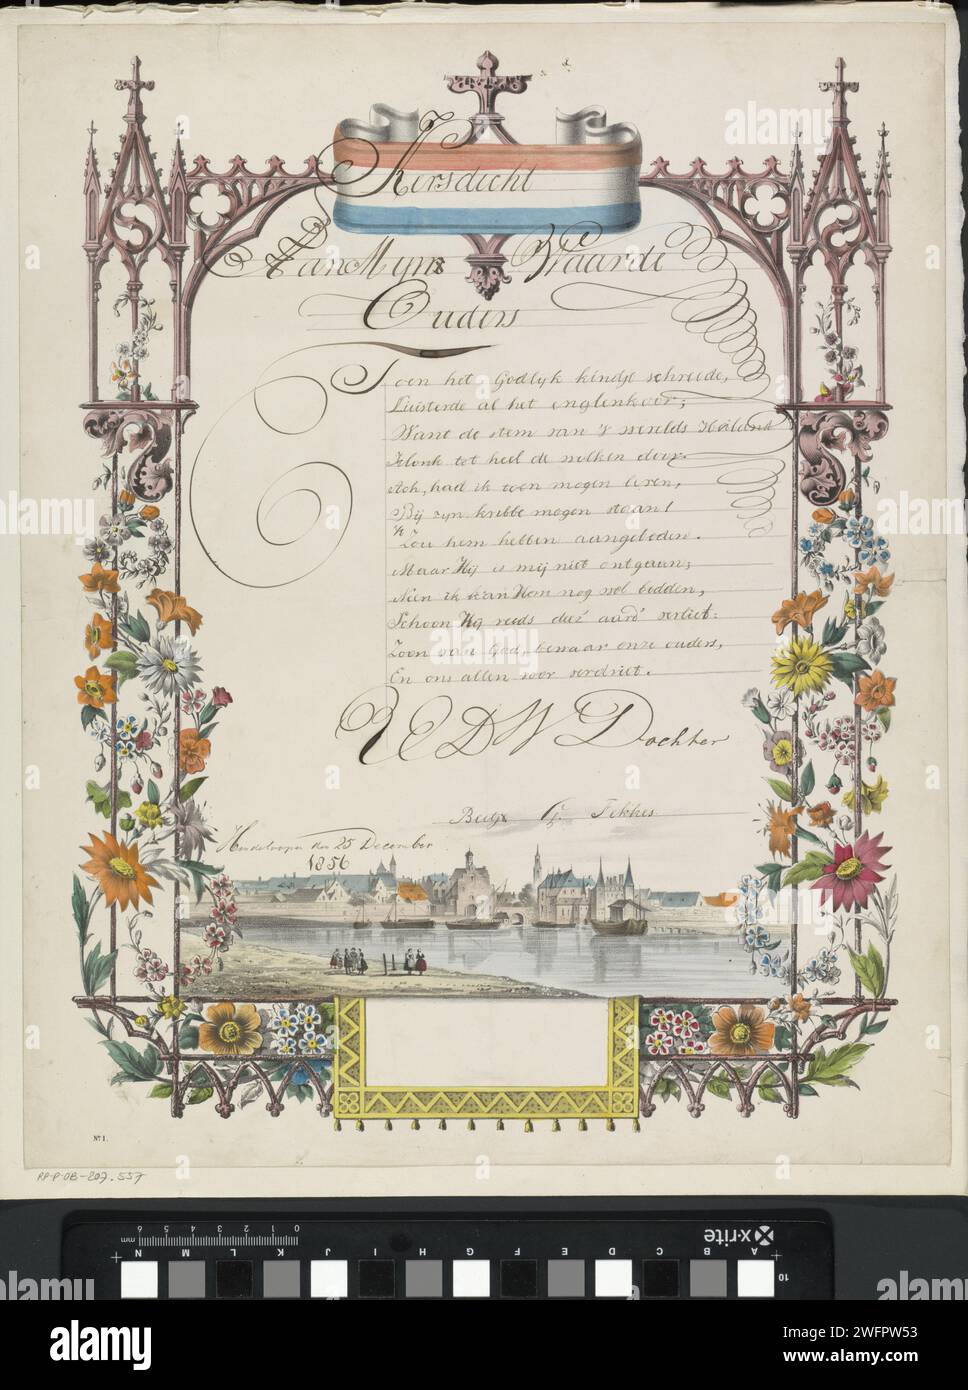 Kersdicht
Aan Mijne Waarde
Ouders
Toen het Godlyk kindje schreide,
Luisterde al het englenkoor;
Want de stem van 's werelds Heiland
Klonk tot heel de wolken door.
Ach, had ik toen mogen leven,
Bij zyn kribbe mogen staan!
'k Zou hem hebben aangebeden.
Maar Hij is mij niet ontgaan;
Neen ik kan Hem nog wel bidden,
Schoon Hij reeds dez' aard' verliet:
Zoon van God, bewaar onze ouders,
En ons allen voor verdriet.
U E D W Dochter
G Fekkes
Hindeloopen den 25 December
1856
No 1.
RP-P-OB-207.557
x-rite
mm
0 1 2 3 4 5 6
A B C D E F G H I J K L M N
10
alamy
Image ID: 2WFPW53
www.alamy.com